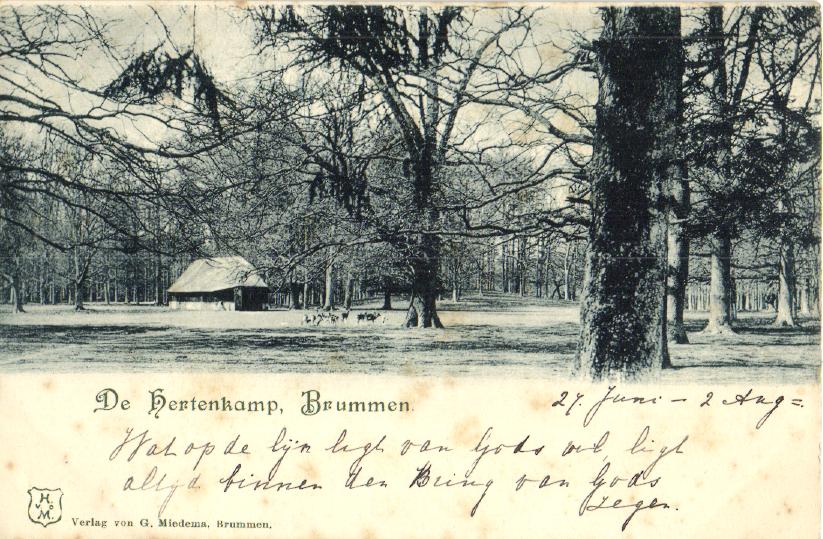 De Hertenkamp, Brummen.
27. Juni – 2 Aug =.
Wat op de lijn ligt van Gods wil, ligt
altyd binnen den Kring van Gods
zegen.
H. M.
Verlag von G. Miedema, Brummen.